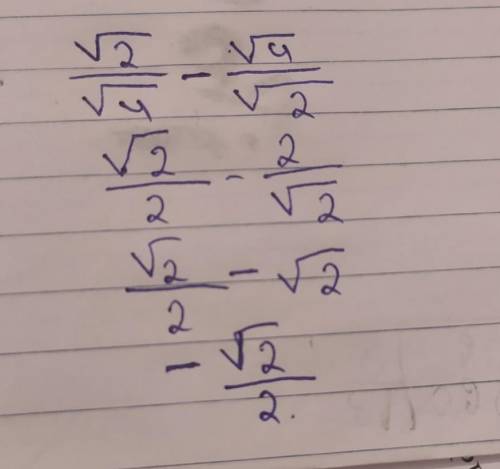 √2/√4 - √4/√2
√2/2 - 2/√2
√2/2 - √2
- √2/2.